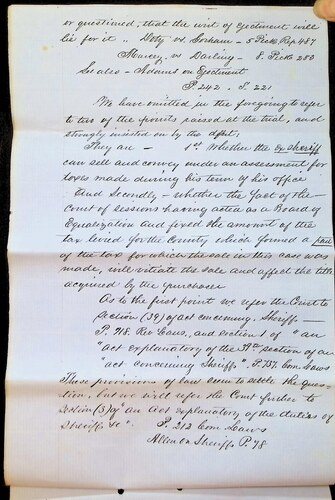 or questioned, that the writ of Ejectment will
lie for it .. Doty vs. Gorham - 5 Pick. Rep 487
Marcy vs Darling - 8. Pick 283
See also - Adams on Ejectment
P. 242 . S. 221
We have omitted in the foregoing to refer
to two of the points raised at the trial, and
strongly insisted on by the defts.
They are - 1st Whether the ex sheriff
can sell and convey under an assessment for
taxes made during his term of his office
And Secondly - whether the fact of the
court of sessions having acted as a Board of
Equalization and fixed the amount of the
tax levied for the County which formed a part
of the tax for which the sale in this case was
made, will vitiate the sale and affect the title
acquired by the purchaser
As to the first point we refer the Court to
Section (39) of act concerning Sheriffs -
P. 718. Rev Laws, and section 1 of "an
"act explanatory of the 39th section of an
"act concerning Sheriffs". P. 757. Com Laws
These provisions of law seem to settle the ques-
tion, but we will refer the Court further to
Section (5) of "an act explanatory of the duties of
Sheriffs &c" P. 212 Com Laws
Allen on Sheriffs P. 78